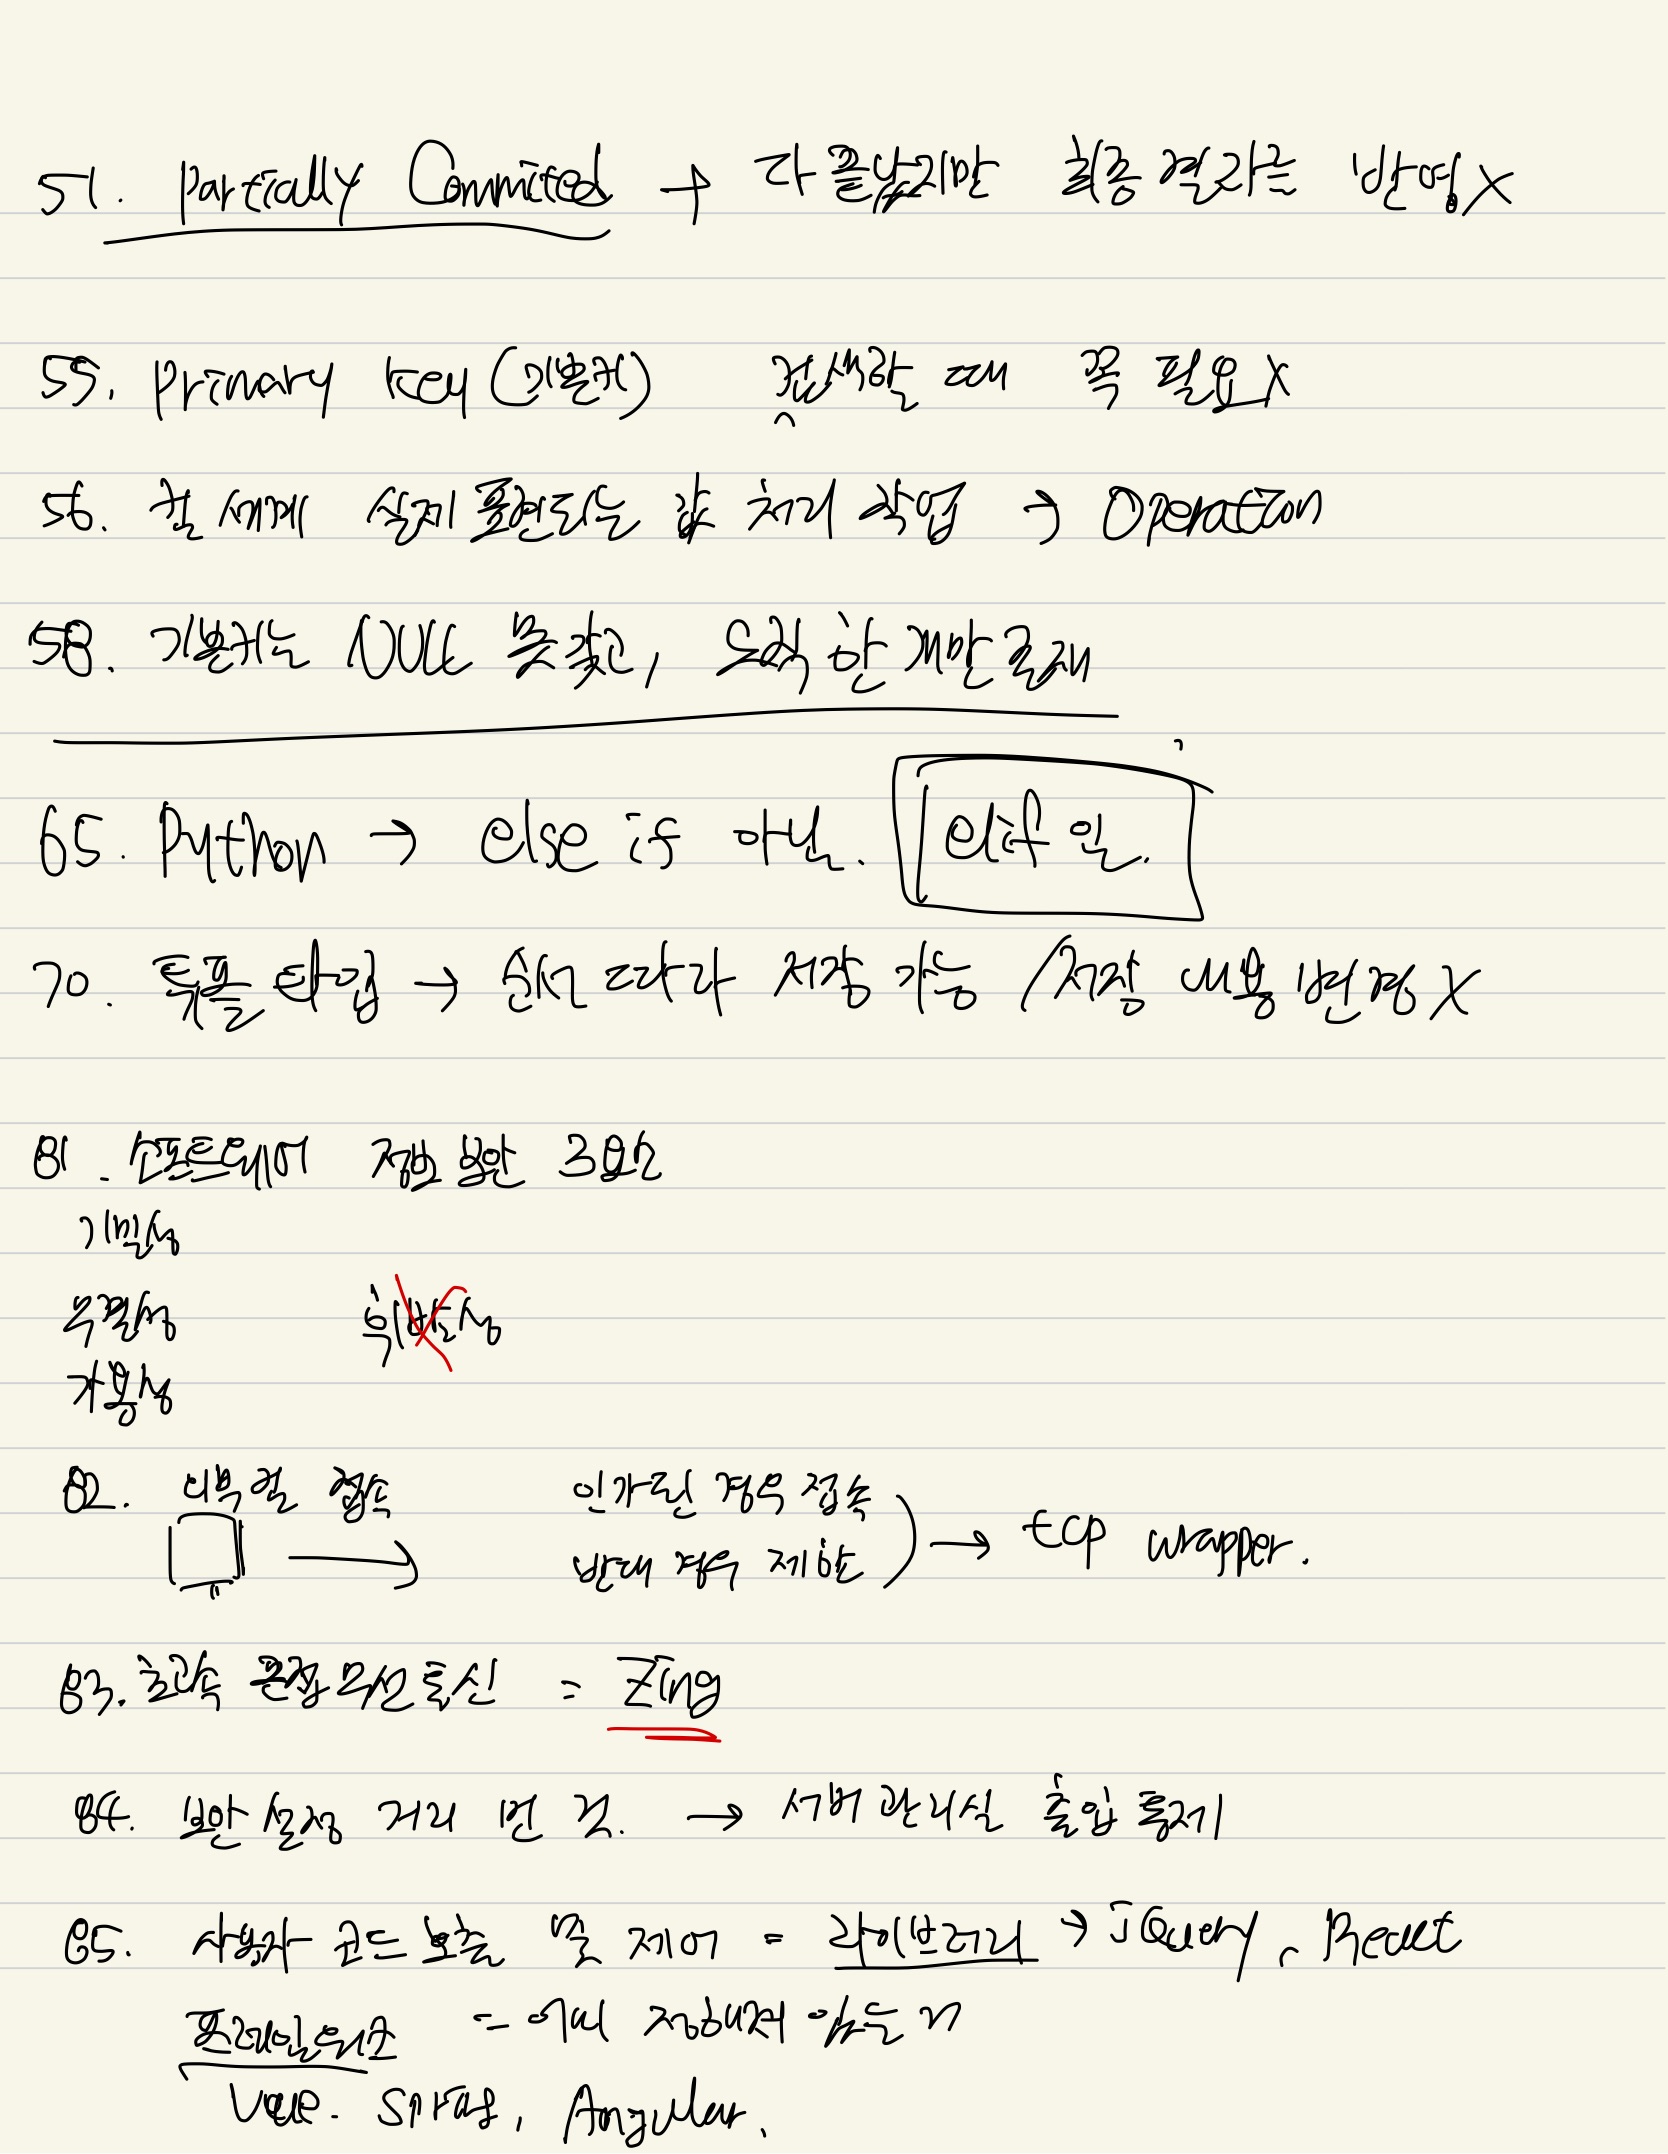 51. Partially Commited → 다 끝났지만 최종 결과는 반영X
55. Primary Key (기본키) 검색할 때 꼭 필요X
56. 릴 세계 실제 표현되는 값 처리 작업 → Operation
58. 기본키는 NULL 못 갖고, 오직 한 개만 존재
65. Python → else if 아닌. elif 인.
70. 튜플 타입 → 순서 따라 저장 가능 / 저장 내용 변경 X
81. 소프트웨어 정보 보안 3요소
기밀성
무결성 휘발성
가용성
82. 외부 컴 접속 인가된 경우 접속
반대 경우 제한 → tcp wrapper.
83. 초고속 근접 무선 통신 = Zing
84. 보안 설정 거리 먼 것. → 서버 관리실 출입 통제
85. 사용자 코드 호출 및 제어 = 라이브러리 → jQuery, React
프레임워크 = 이미 정해져 있는
Vue. Spring, Angular.